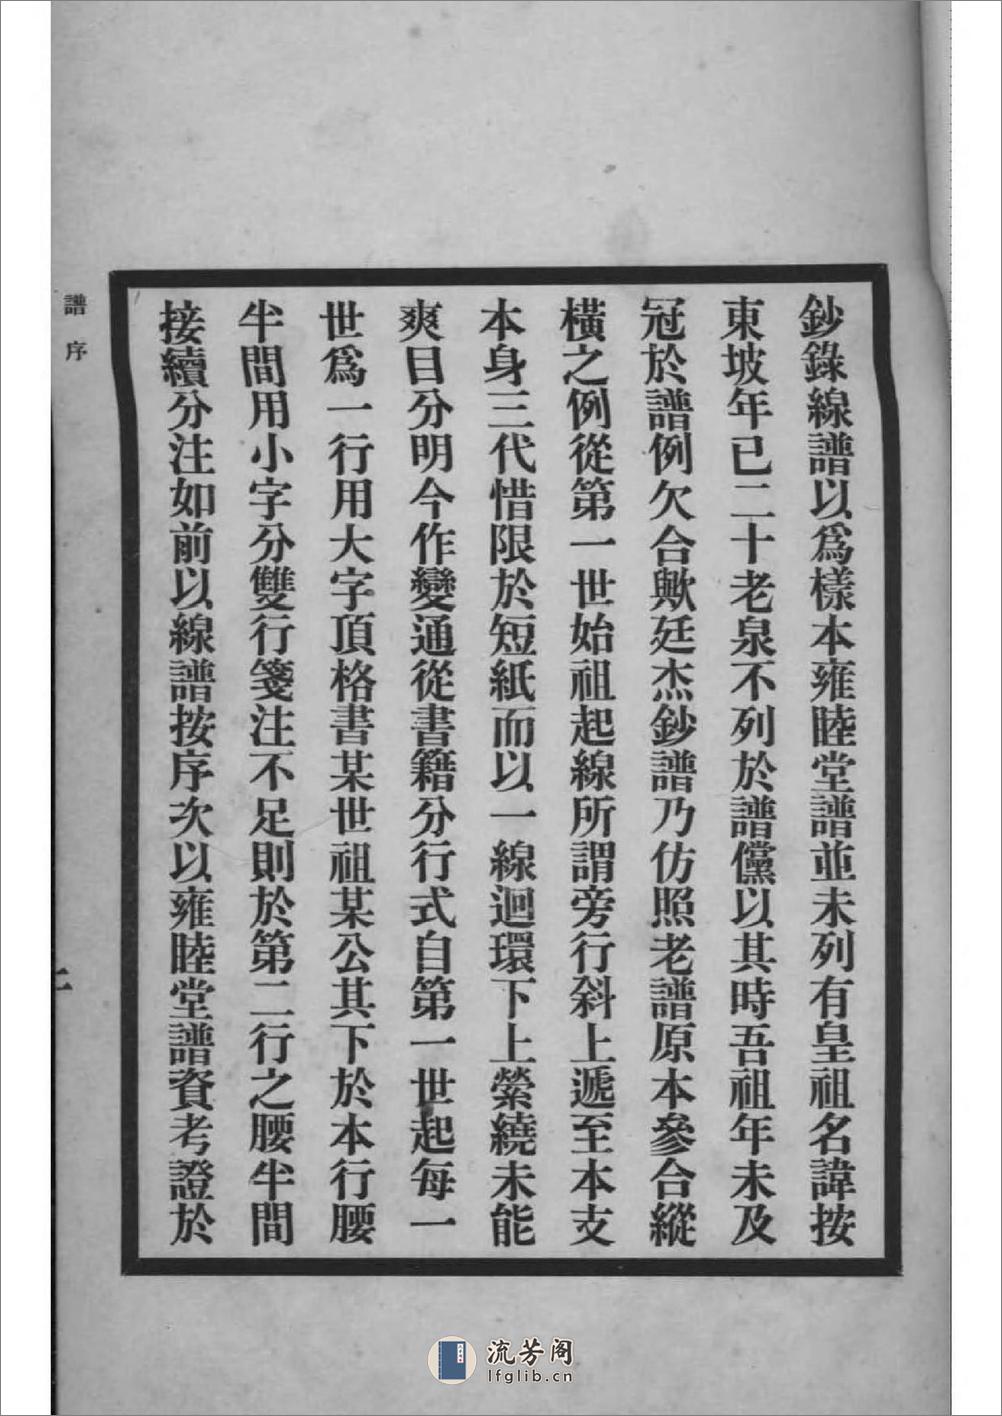 鈔錄線譜以爲樣本雍睦堂譜並未列有皇祖名諱按
東坡年已二十老泉不列於譜儻以其時吾祖年未及
冠於譜例欠合歟廷杰鈔譜乃仿照老譜原本參合縱
橫之例從第一世始祖起線所謂旁行斜上遞至本支
本身三代惜限於短紙而以一線迴環下上縈繞未能
爽目分明今作變通從書籍分行式自第一世起每一
世爲一行用大字頂格書某世祖某公其下於本行腰
半間用小字分雙行箋注不足則於第二行之腰半間
接續分注如前以線譜按序次以雍睦堂譜資考證於
譜序
二
流芳阁
lfglib.cn